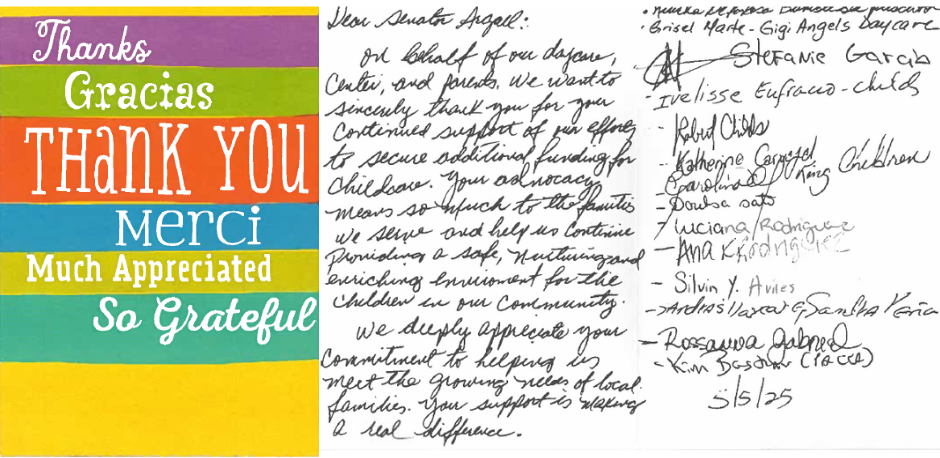 Thanks
Gracias
THANK YOU
Merci
Much Appreciated
So Grateful
Dear Senator Argall:
On behalf of our daycare,
Center, and parents. We want to
sincerely thank you for your
continued support of our efforts
to secure additional funding for
childcare. Your advocacy
means so much to the families
we serve and help us continue
providing a safe, nurturing and
enriching enviroment for the
children in our community.
We deeply appreciate your
commitment to helping us
meet the growing needs of local
families. Your support is making
a real difference.
• Grisel Marte - Gigi Angels Daycare
Stefanie Garcia
- Ivelisse Eufracio - childs
- Robert Childs
- Katherine
- Carolina King Children
- soto
Luciana Rodriguez
- Ana Rodriguez
- Silvin Y. Aviles
- Sandra
- Rossanna Gabriel
- Kim (PACCA)
5/5/25